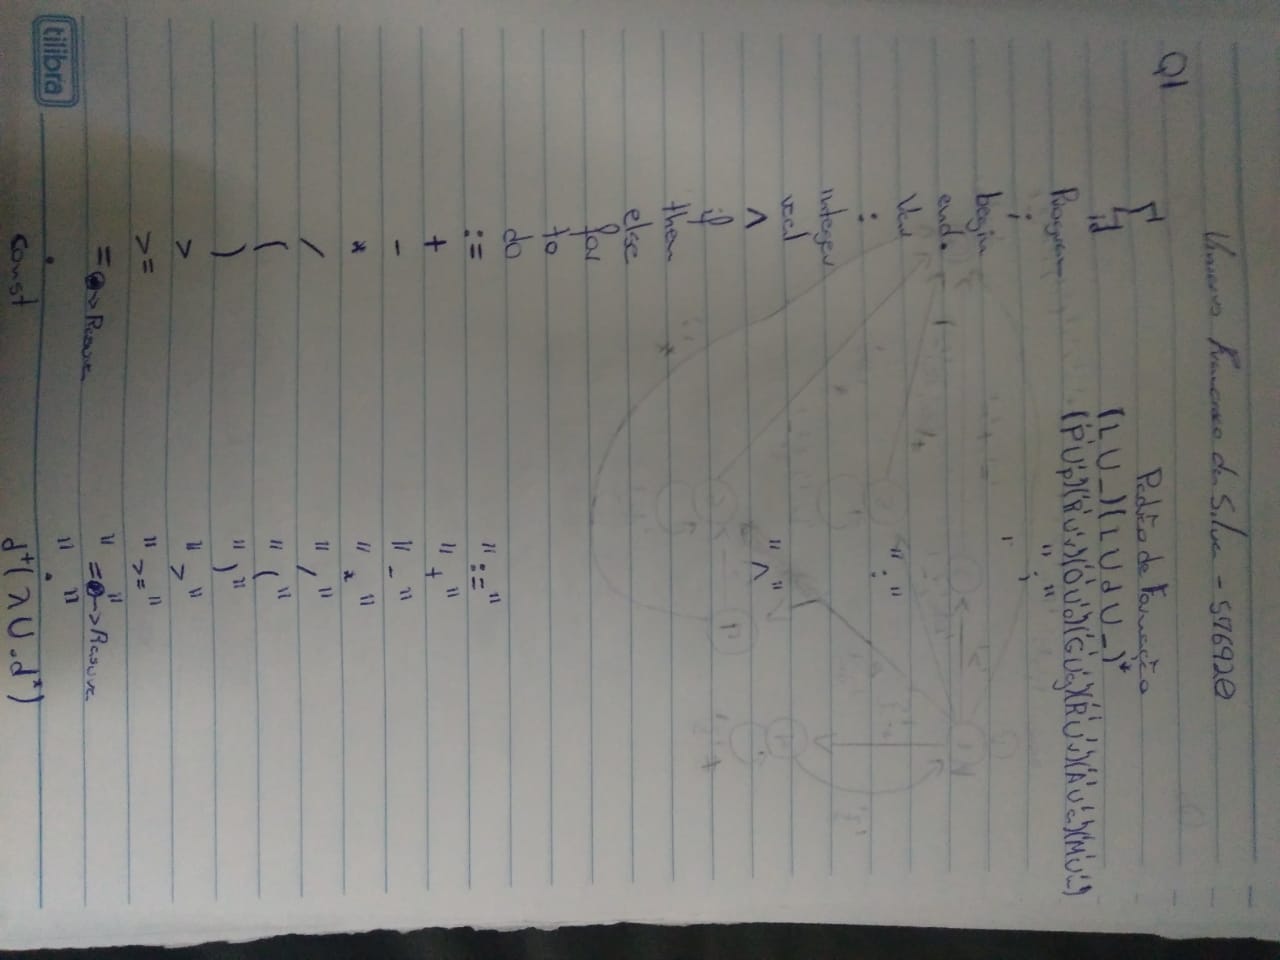 Francisco da Silva - 576920
Q1
Σ Padrão de Formação
id (L U _)(L U d U _)*
Program ('P'U'p')('R'U'r')('O'U'o')('G'U'g')('R'U'r')('A'U'a')('M'U'm')
; ";"
begin
end.
Var
: ":"
integer
real
^ "^"
if
then
else
for
to
do
:= ":="
+ "+"
- "-"
* "*"
/ "/"
( "("
) ")"
> ">"
>= ">="
= -> Rasura "=" -> Rasura
. "."
const d⁺(λ U .d*)
tilibra